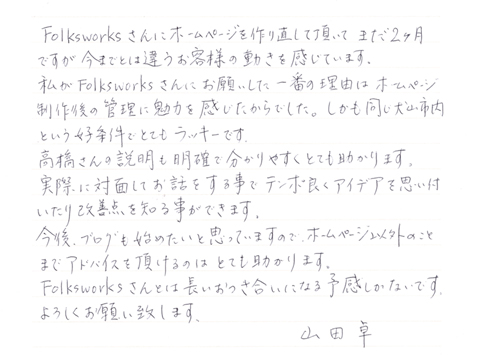 Folksworksさんにホームページを作り直して頂いてまだ2ヶ月
ですが今までとは違うお客様の動きを感じています。
私がFolksworksさんにお願いした一番の理由はホームページ
制作後の管理に魅力を感じたからでした。しかも同じ犬山市内
という好条件でとてもラッキーです。
高橋さんの説明も明確で分かりやすくとても助かります。
実際に対面してお話をする事でテンポ良くアイデアを思い付
いたり改善点を知る事ができます。
今後、ブログも始めたいと思っていますので、ホームページ以外のこと
までアドバイスを頂けるのはとても助かります。
Folksworksさんとは長いおつき合いになる予感しかないです。
よろしくお願い致します。
山田卓